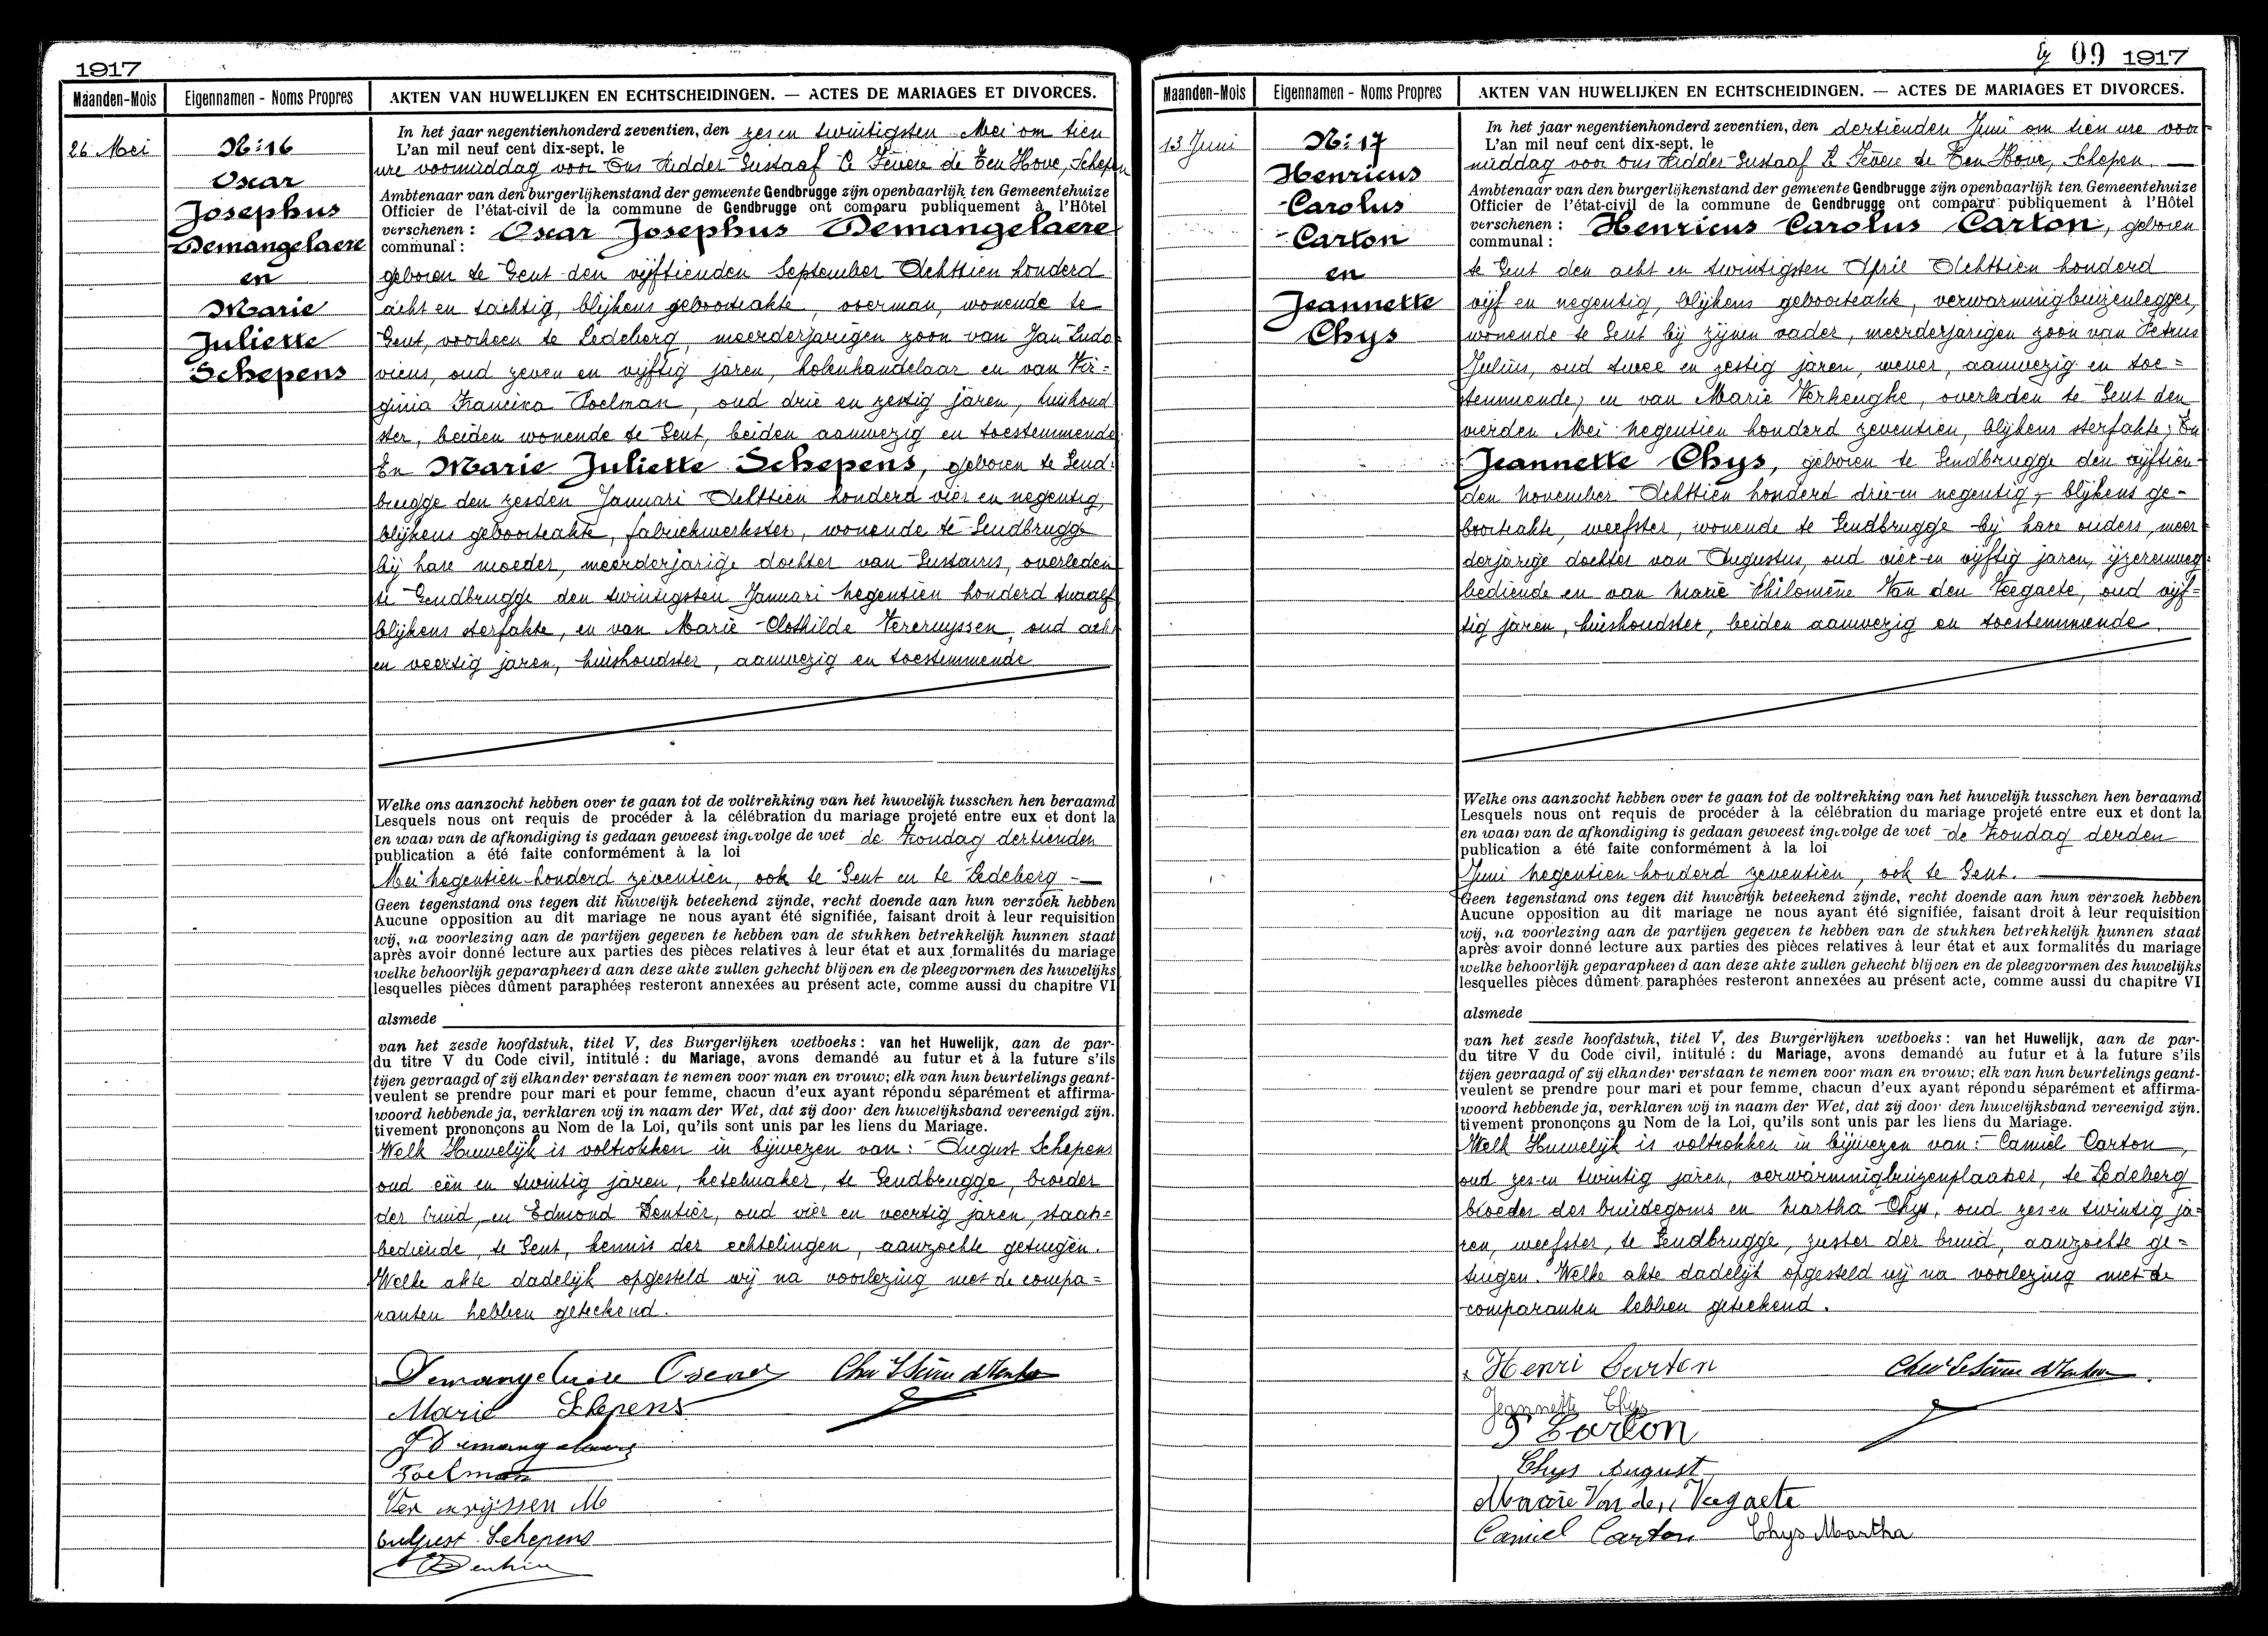 1917
Maanden-Mois
Eigennamen - Noms Propres
AKTEN VAN HUWELIJKEN EN ECHTSCHEIDINGEN. — ACTES DE MARIAGES ET DIVORCES.
26 Mei
No: 16
Oscar
Josephus
Demangelaere
en
Marie
Juliette
Schepens
In het jaar negentienhonderd zeventien, den zes en twintigsten Mei om tien
L'an mil neuf cent dix-sept, le
ure voormiddag voor Ons Ridder Gustaaf Le Fevere de Ten Hove, Schepen
Ambtenaar van den burgerlijkenstand der gemeente Gendbrugge zijn openbaarlijk ten Gemeentehuize
Officier de l'état-civil de la commune de Gendbrugge ont comparu publiquement à l'Hôtel
verschenen : Oscar Josephus Demangelaere
communal :
geboren te Gent den vijftienden September Achttien honderd
acht en tachtig, blijkens geboorteakte, voerman, wonende te
Gent, voorheen te Ledeberg, meerderjarigen zoon van Jan Ludo-
vicus, oud zeven en vijftig jaren, kolenhandelaar en van Vir=
ginia Francisca Poelman, oud drie en zestig jaren, huishoud
ster, beiden wonende te Gent, beiden aanwezig en toestemmende.
En Marie Juliette Schepens, geboren te Gend-
brugge den zesden Januari Achttien honderd vier en negentig,
blijkens geboorteakte, fabriekwerkster, wonende te Gendbrugge
bij hare moeder, meerderjarige dochter van Gustavus, overleden
te Gendbrugge den twintigsten Januari negentien honderd twaalf
blijkens sterfakte, en van Marie Clothilde Vercruyssen, oud acht
en veertig jaren, huishoudster, aanwezig en toestemmende
Welke ons aanzocht hebben over te gaan tot de voltrekking van het huwelijk tusschen hen beraamd
Lesquels nous ont requis de procéder à la célébration du mariage projeté entre eux et dont la
en waar van de afkondiging is gedaan geweest ingevolge de wet de Zondag dertienden
publication a été faite conformément à la loi
Mei negentien honderd zeventien, ook te Gent en te Ledeberg
Geen tegenstand ons tegen dit huwelijk beteekend zijnde, recht doende aan hun verzoek hebben
Aucune opposition au dit mariage ne nous ayant été signifiée, faisant droit à leur requisition
wij, na voorlezing aan de partijen gegeven te hebben van de stukken betrekkelijk hunnen staat
après avoir donné lecture aux parties des pièces relatives à leur état et aux formalités du mariage
welke behoorlijk geparapheerd aan deze akte zullen gehecht blijven en de pleegvormen des huwelijks
lesquelles pièces dûment paraphées resteront annexées au présent acte, comme aussi du chapitre VI
alsmede
van het zesde hoofdstuk, titel V, des Burgerlijken wetboeks : van het Huwelijk, aan de par-
du titre V du Code civil, intitulé : du Mariage, avons demandé au futur et à la future s'ils
tijen gevraagd of zij elkander verstaan te nemen voor man en vrouw; elk van hun beurtelings geant-
veulent se prendre pour mari et pour femme, chacun d'eux ayant répondu séparément et affirma-
woord hebbende ja, verklaren wij in naam der Wet, dat zij door den huwelijksband vereenigd zijn.
tivement prononçons au Nom de la Loi, qu'ils sont unis par les liens du Mariage.
Welk Huwelijk is voltrokken in bijwezen van : August Schepens
oud een en twintig jaren, ketelmaker, te Gendbrugge, broeder
der bruid, en Edmond Dentier, oud vier en veertig jaren, staats=
bediende, te Gent, kennis der echtelingen, aanzochte getuigen.
Welke akte dadelijk opgesteld wij na voorlezing met de compa=
ranten hebben geteekend.
Demangelaere Oscar
Marie Schepens
J Demangelaere
Poelman
Vercruyssen M
August Schepens
09 1917
Maanden-Mois
Eigennamen - Noms Propres
AKTEN VAN HUWELIJKEN EN ECHTSCHEIDINGEN. — ACTES DE MARIAGES ET DIVORCES.
13 Juni
No: 17
Henricus
Carolus
Carton
en
Jeannette
Chys
In het jaar negentienhonderd zeventien, den dertienden Juni om tien ure voor-
L'an mil neuf cent dix-sept, le
middag voor Ons Ridder Gustaaf Le Fevere de Ten Hove, Schepen.
Ambtenaar van den burgerlijkenstand der gemeente Gendbrugge zijn openbaarlijk ten Gemeentehuize
Officier de l'état-civil de la commune de Gendbrugge ont comparu publiquement à l'Hôtel
verschenen : Henricus Carolus Carton, geboren
communal :
te Gent den acht en twintigsten April Achttien honderd
vijf en negentig, blijkens geboorteakte, verwarmingbuizenlegger,
wonende te Gent bij zijnen vader, meerderjarigen zoon van Petrus
Julius, oud twee en zestig jaren, wever, aanwezig en toe=
stemmende, en van Marie Verheughe, overleden te Gent den
vierden Mei negentien honderd zeventien, blijkens sterfakte; En
Jeannette Chys, geboren te Gendbrugge den vijftien-
den November Achttien honderd drie en negentig, blijkens ge-
boorteakte, weefster, wonende te Gendbrugge bij hare ouders, meer
derjarige dochter van Augustus, oud vier en vijftig jaren, ijzerenweg-
bediende en van Marie Philomène Van den Veegaete, oud vijf=
tig jaren, huishoudster, beiden aanwezig en toestemmende.
Welke ons aanzocht hebben over te gaan tot de voltrekking van het huwelijk tusschen hen beraamd
Lesquels nous ont requis de procéder à la célébration du mariage projeté entre eux et dont la
en waar van de afkondiging is gedaan geweest ingevolge de wet de Zondag derden
publication a été faite conformément à la loi
Juni negentien honderd zeventien, ook te Gent.
Geen tegenstand ons tegen dit huwelijk beteekend zijnde, recht doende aan hun verzoek hebben
Aucune opposition au dit mariage ne nous ayant été signifiée, faisant droit à leur requisition
wij, na voorlezing aan de partijen gegeven te hebben van de stukken betrekkelijk hunnen staat
après avoir donné lecture aux parties des pièces relatives à leur état et aux formalités du mariage
welke behoorlijk geparapheerd aan deze akte zullen gehecht blijven en de pleegvormen des huwelijks
lesquelles pièces dûment paraphées resteront annexées au présent acte, comme aussi du chapitre VI
alsmede
van het zesde hoofdstuk, titel V, des Burgerlijken wetboeks : van het Huwelijk, aan de par-
du titre V du Code civil, intitulé : du Mariage, avons demandé au futur et à la future s'ils
tijen gevraagd of zij elkander verstaan te nemen voor man en vrouw; elk van hun beurtelings geant-
veulent se prendre pour mari et pour femme, chacun d'eux ayant répondu séparément et affirma-
woord hebbende ja, verklaren wij in naam der Wet, dat zij door den huwelijksband vereenigd zijn.
tivement prononçons au Nom de la Loi, qu'ils sont unis par les liens du Mariage.
Welk Huwelijk is voltrokken in bijwezen van : Camiel Carton,
oud zes en twintig jaren, verwarmingbuizenplaatser, te Ledeberg
broeder des bruidegoms en Martha Chys, oud zes en twintig ja-
ren, weefster, te Gendbrugge, zuster der bruid, aanzochte ge-
tuigen. Welke akte dadelijk opgesteld wij na voorlezing met de
comparanten hebben geteekend.
Henri Carton
Jeannette Chys
P Carton
Chys August
Marie Van den Veegaete
Camiel Carton Chys Martha